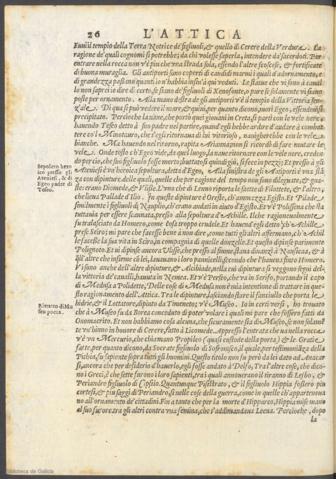 26 L'ATTICA
Euui il tempio della Terra Nutrice de' figliuoli, & quello di Cerere della Verdura. La
ragione de' quali cognomi si potrebbe, da chi volesse saperla, intendere da' Sacerdoti. Per
entrare nella rocca non v'è piu che vna strada sola, essendo l'altre scoscese, & fortificate
di buona muraglia. Gli antiporti sono coperti di candidi marmi i quali d'adornamento, e
di grandezza passano quanti n'habbia insin'à qui veduti. Le statue che vi sono à caual-
lo non saprei io dire di certo, se siano de' figliuoli di Xenofonte, o pure se solamente vi siano
poste per ornamento. Alla mano destra de gli antiporti v'è il tempio della Vittoria sen-
z'ale. Di qua si può vedere il mare, & quiui, per quanto dicono, morì Egeo, essendouisi
precipitato. Percioche la naue, che portò quei giouani in Creta, si partì con le vele nere:
hauendo Teseo detto à suo padre nel partire, quand'egli hebbe ardire d'andare à combat-
tere co'l Minotauro, che s'egli ritornaua di lui vittorioso, nauigherebbe con le vele
bianche. Ma hauendo nel ritorno, rapita Ariannassi si scordò di fare mutare le
vele. Onde tosto ch'Egeo vide, da quel luogo, la naue ritornare con le vele nere, creden-
do percio, che suo figliuolo fosse morto, buttatosi quindi giù, si fece in pezzi; Et presso à gli
Ateniesi v'è vna heroica sepoltura, detta d'Egeo. Alla sinistra de gli Antiporti è vna stã
za con dipinture, delle quali, quelle che per cagione del tempo non sono dileguate, & gua-
ste: erano Diomede, & Vlisse. L'vno che di Lenno riporta le saette di Filottete, & l'altro,
che leua Pallade d'Ilio. In queste dipinture è Oreste, ch'ammazza Egisto. Et Pilade,
similmente i figliuoli di Nauplio, ch'erano andati in aiuto d'Egisto. Et v'è Polissena che sta
tuttauia per essere scannata, presso alla sepoltura d'Achille. Il che ragioneuolmente
fu tralasciato da Homero, come cosa troppo crudele. Et hauend'egli detto ch'Achille
prese Sciro; mi pare che facesse bene à non dire, come tutti gli altri affermano, che Achil-
le facesse la sua vita in Sciro, in compagnia di quelle donzelle. Et questo dipinse parimente
Polignoto. Et vi dipinse ancora Vlisse, che presso al fiume staua dinanzi à Nausicaa, & à
gli altre che insieme cō lei, lauauano i loro pannicelli. secondo che l'haueua finto Homero.
Visono anche dell'altre dipinture, & Alcibiade, nella cui dipintura si veggono segni del-
la vittoria de' caualli, hauuta in Nemea. Et v'è Perseo, che va in Serifo, portando il capo
di Medusa a Polidette. Delle cose di Medusa non è mia intentione di trattare in que-
sto ragionamento dell'Attica. Tra le dipinture, lasciando stare il fanciullo che porta le,
hidrie, & il Lottatore dipinto da Timeneto; v'è Museo. Io in certi versi, ho trouato
che à Museo fu da Borea conceduto di poter volare: i quali mi pare che fossero fatti da
Onomacrito. Et non habbiamo cosa alcuna, che sicuramente sia di Museo, se non solamẽ
te vn'hinno in honore di Cerere, fatto à Licomede. Appresso l'entrata che va nella rocca
v'è vn Mercurio, che chiamano Propileo (quasi custode della porta) & le Gratie,
fatte, per quanto dicono, da Socrate figliuolo di Sofronisco, il quale, per testimonio della
Pithia, fu sapiente sopra tutti gli huomini. Questo titolo non fu però da lei dato ad Anacar
si, ancora che per desiderio d'hauerlo, egli fosse andato à Delfo. Tra l'altre cose, che dico-
no i Greci, è che sette furono i loro sapienti, tra i quali annouerano il tiranno di Lesbo, &
Periandro figliuolo di Cipselo. Quantunque Pisistrato, & il figliuolo Hippia fosse più
cortese, & più saggi di Periandro, sì nelle cose della guerra, come in quelle ch'apparteneua
no all'ornamento de' cittadini. Fin à tanto che per la morte d'Hipparco, Hippia mandò
al suo furore, tra gli altri contra vna femina, che s'addimandaua Leena. Percioche, dopo
la
Sepoltura hero
ica presso gli
Ateniesi, & di
Egeo padre di
Teseo.
Ritratto di Mu
seo poeta.
Biblioteca de Galicia